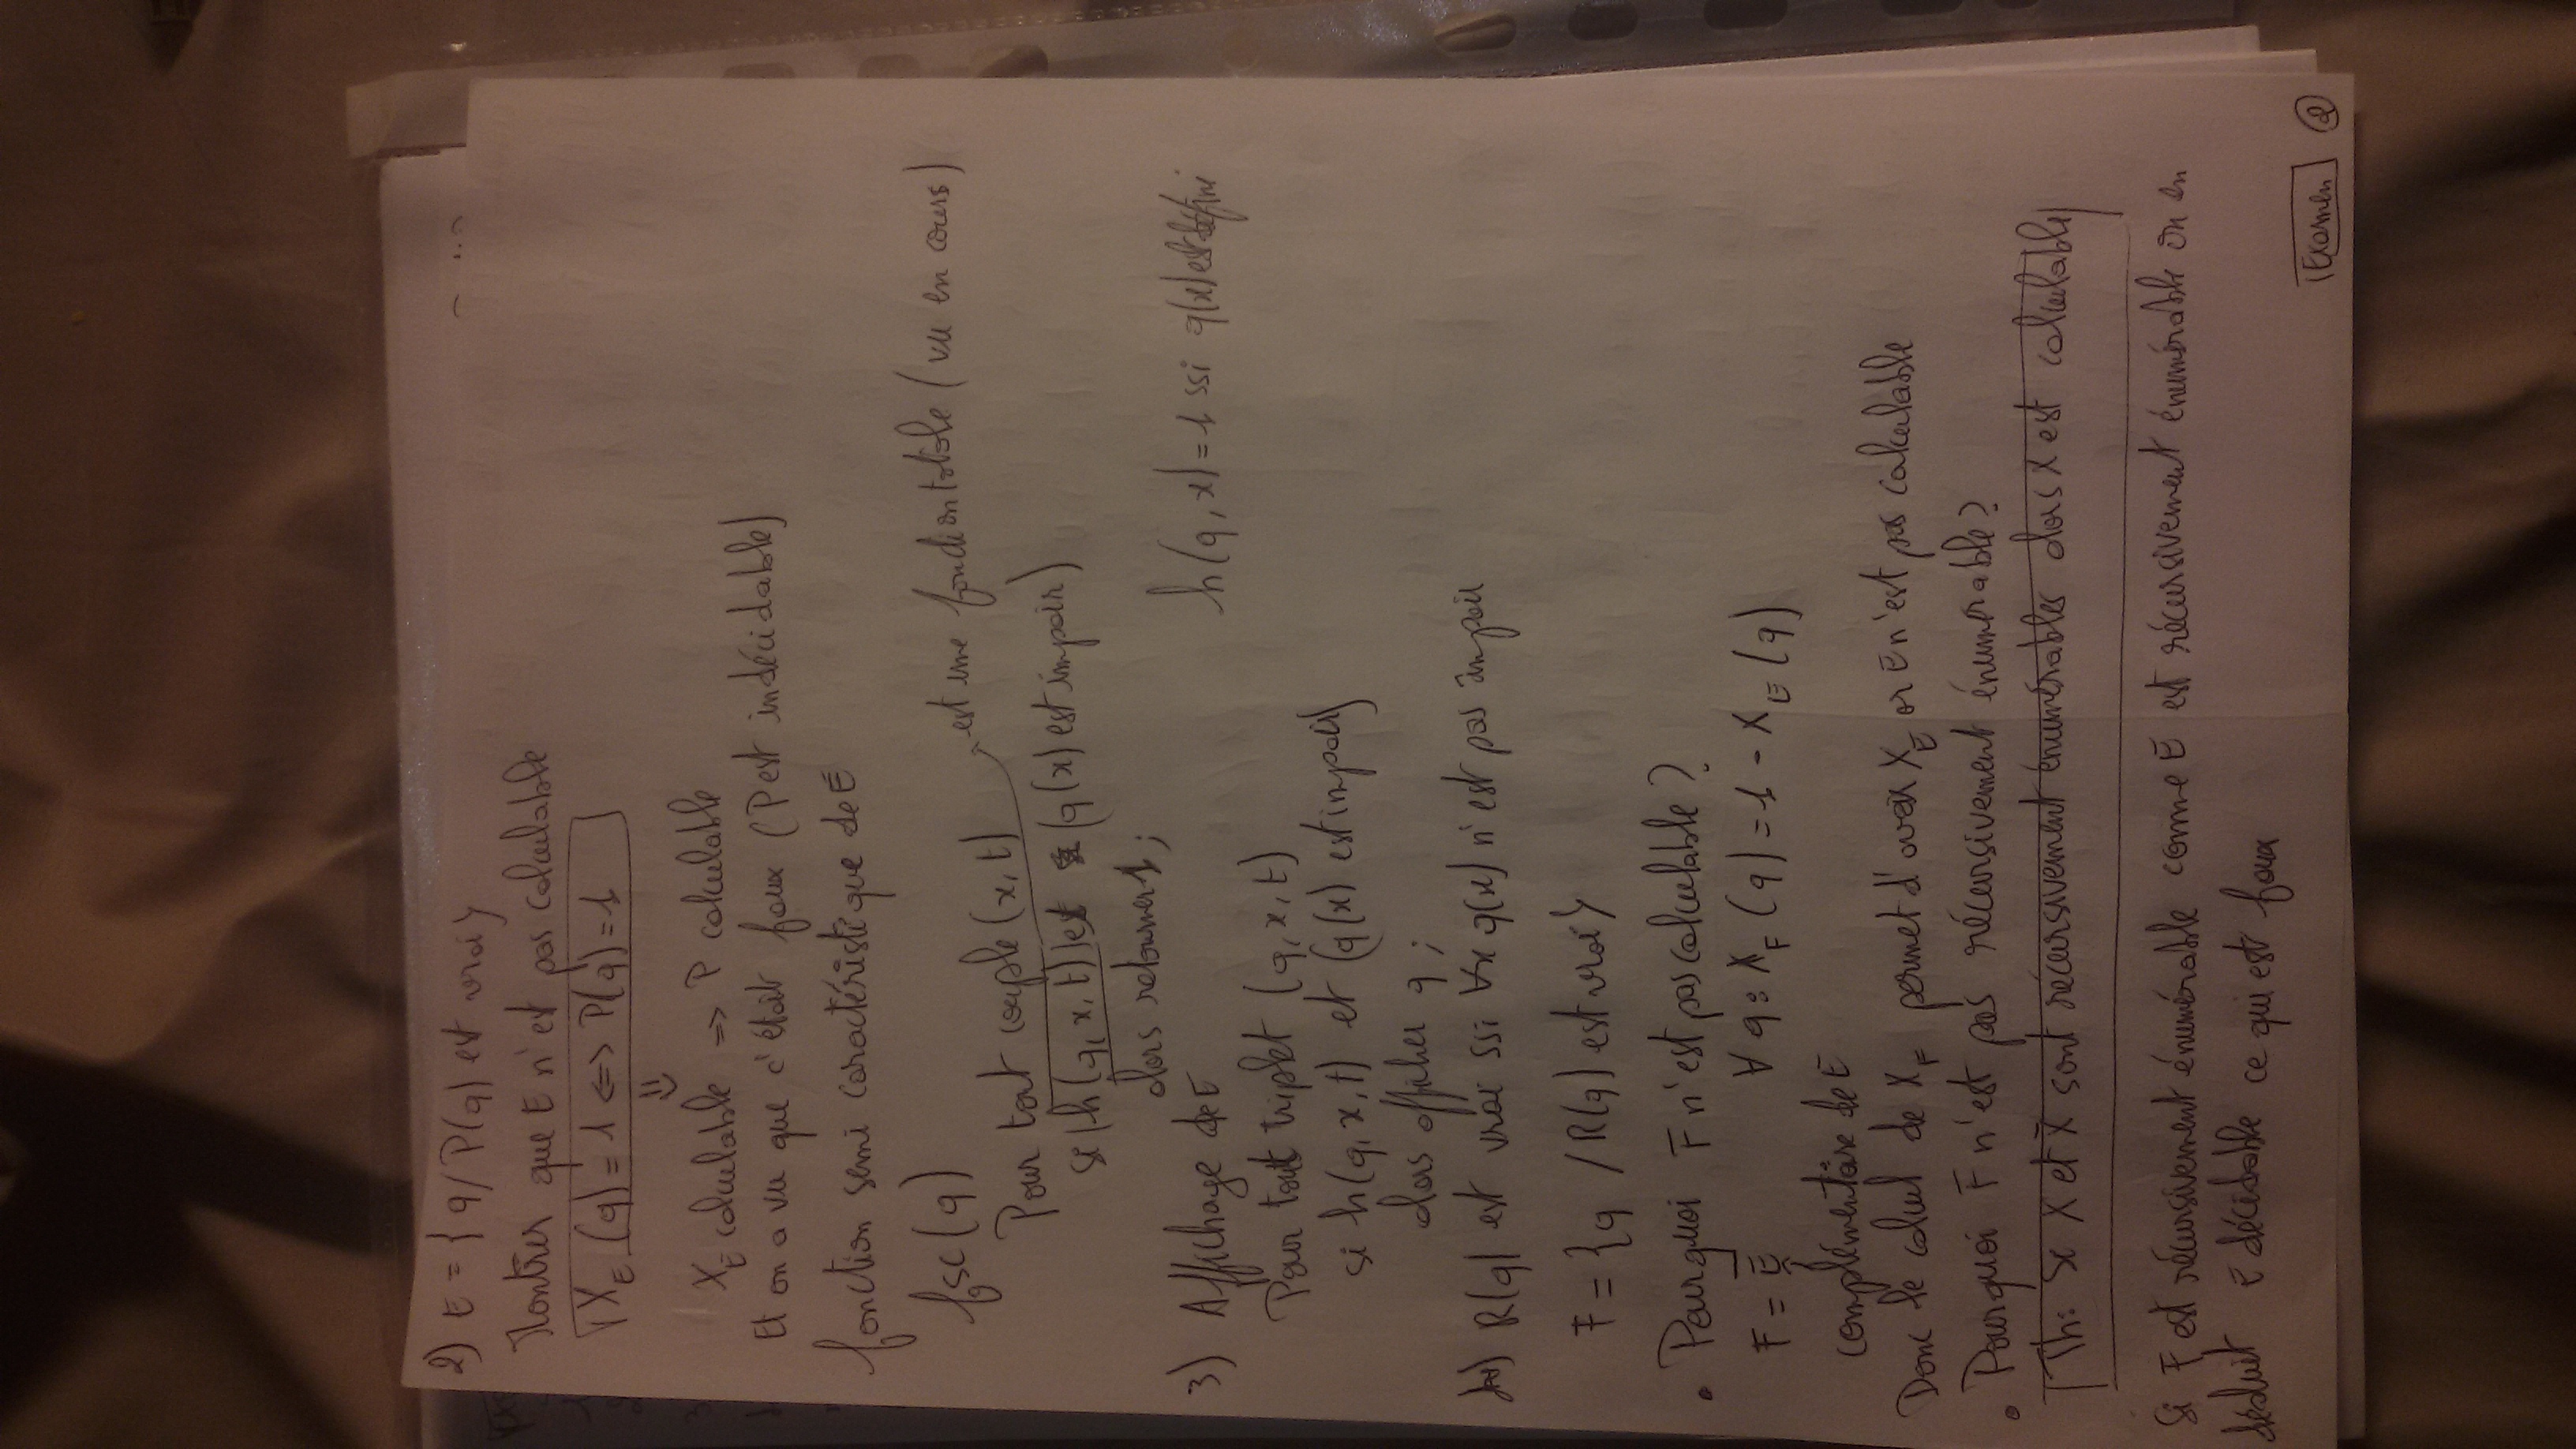 2) E = { q / P(q) est vrai }
Montrer que E n'est pas calculable
χ_E (q) = 1 <=> P(q) = 1
⇓
χ_E calculable => P calculable
Et on a vu que c'était faux (P est indécidable)
fonction semi caractéristique de E
fsc(q)
est une fonction totale (vu en cours)
Pour tout couple (x, t)
si h(q, x, t) et (q(x) est impair)
alors retourner 1 ;
3) Affichage de E
h(q, x) = 1 ssi q(x) est défini
Pour tout triplet (q, x, t)
si h(q, x, t) et (q(x) est impair)
alors afficher q ;
R(q) est vrai ssi ∀x q(x) n'est pas impair
F = { q / R(q) est vrai }
• Pourquoi F n'est pas calculable ?
F = Ē ∀ q : χ_F (q) = 1 - χ_E (q)
complémentaire de E
Donc le calcul de χ_F permet d'avoir χ_E or E n'est pas calculable
• Pourquoi F n'est pas récursivement énumérable ?
Th : Si X et X̄ sont récursivement énumérables alors X est calculable
Si F est récursivement énumérable comme E est récursivement énumérable on en
déduit E décidable ce qui est faux
Examen 2